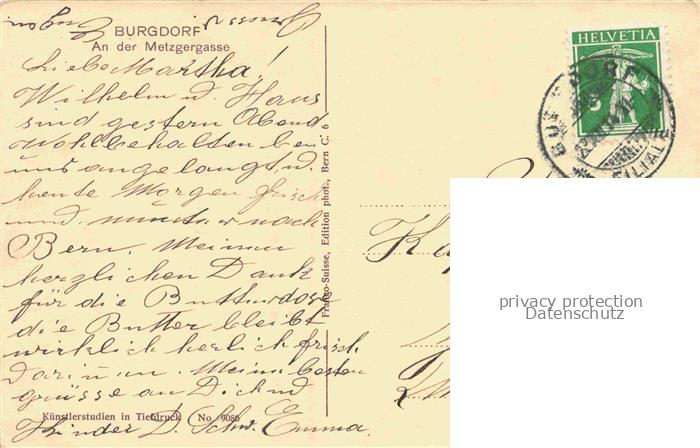 BURGDORF
An der Metzgergasse
Liebe Martha!
Wilhelm u. Hans
sind gestern Abend
wohlbehalten bei
uns angelangt, u.
heute Morgen frisch
und munter nach
Bern. Meinen
herzlichen Dank
für die Butterdose
die Butter bleibt
wirklich herlich frisch
darinnen. Meine besten
grüsse an Dich und
Kinder D. Schw. Emma.
Künstlerstudien in Tiefdruck No. 9086
Franco-Suisse, Edition phot., Bern C. 6
HELVETIA
5
BURGDORF
FILIALE
privacy protection
Datenschutz